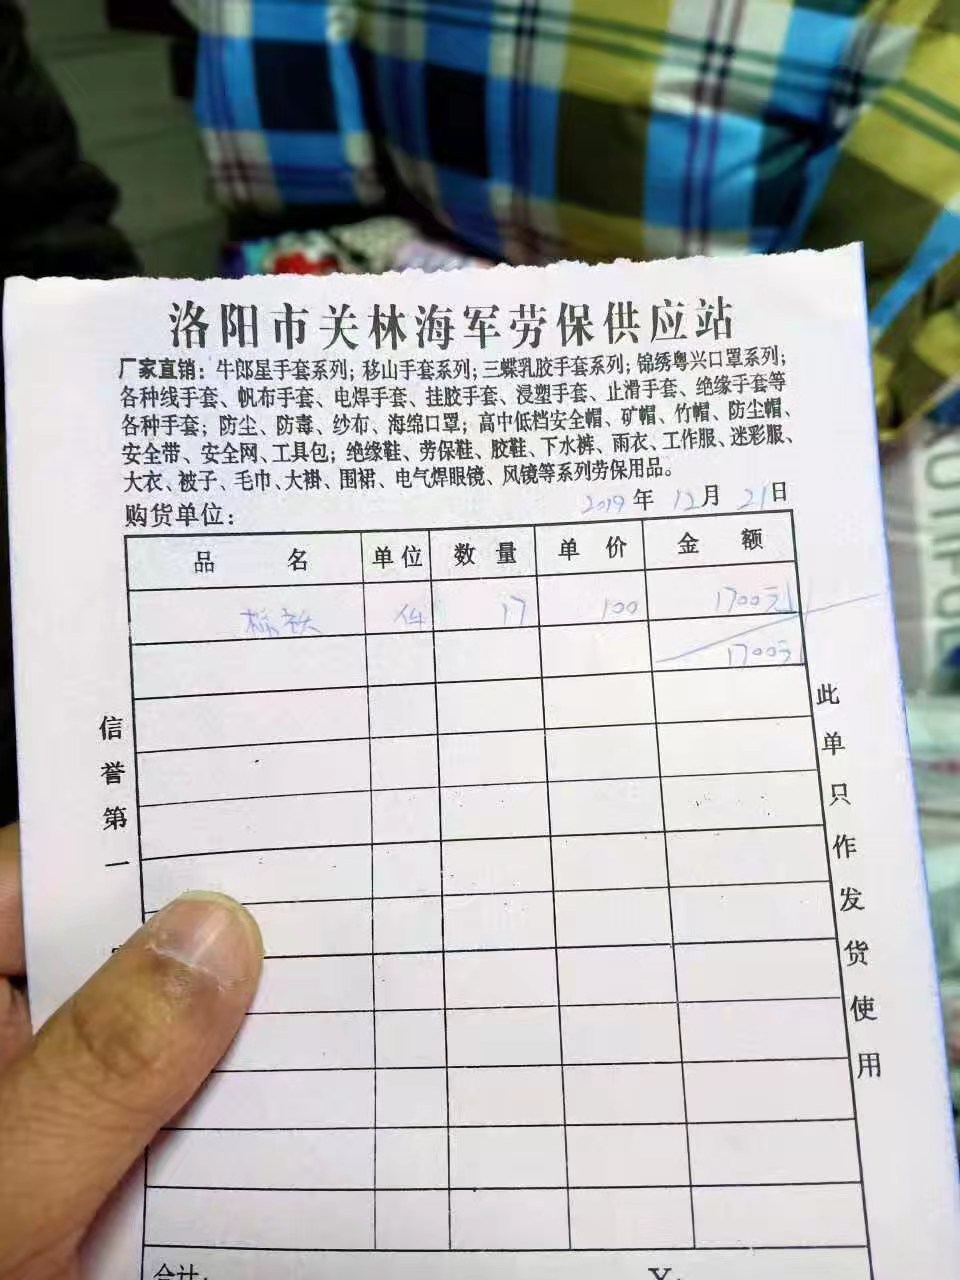 洛阳市关林海军劳保供应站
厂家直销：牛郎星手套系列；移山手套系列；三蝶乳胶手套系列；锦绣粤兴口罩系列；
各种线手套、帆布手套、电焊手套、挂胶手套、浸塑手套、止滑手套、绝缘手套等
各种手套；防尘、防毒、纱布、海绵口罩；高中低档安全帽、矿帽、竹帽、防尘帽、
安全带、安全网、工具包；绝缘鞋、劳保鞋、胶鞋、下水裤、雨衣、工作服、迷彩服、
大衣、被子、毛巾、大褂、围裙、电气焊眼镜、风镜等系列劳保用品。
2019年 12月 21日
购货单位：
品 名 单位 数 量 单 价 金 额
件 17 100 1700元
1700元
信誉第一
此单只作发货使用
合计： ¥：